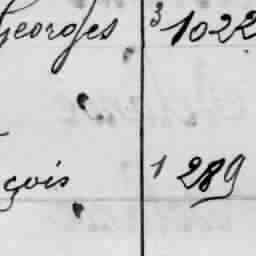 Georges 3 1022
çois 1 289